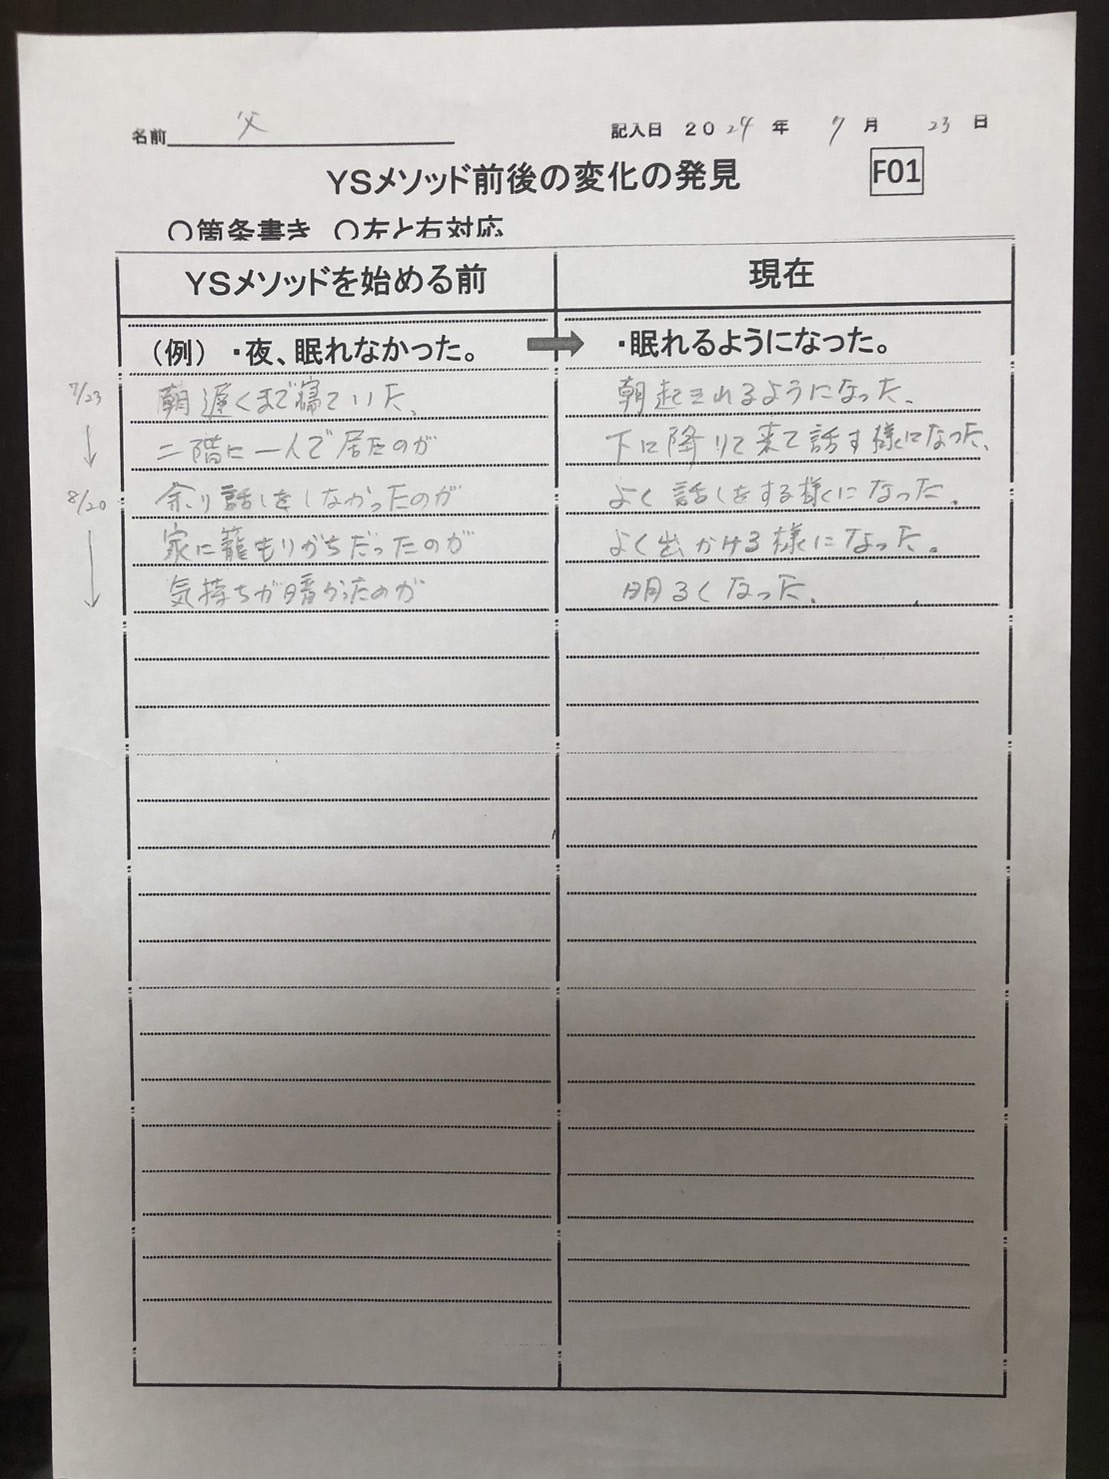 名前 父 記入日 2024 年 7 月 23 日
YSメソッド前後の変化の発見 F01
○箇条書き ○左と右対応
YSメソッドを始める前 現在
（例）・夜、眠れなかった。 ・眠れるようになった。
7/23 朝遅くまで寝ていた、 朝起きれるようになった、
二階に一人で居たのが 下に降りて来て話す様になった、
8/20 余り話しをしなかったのが よく話しをする様になった。
家に籠もりがちだったのが よく出かける様になった。
気持ちが暗かったのが 明るくなった.